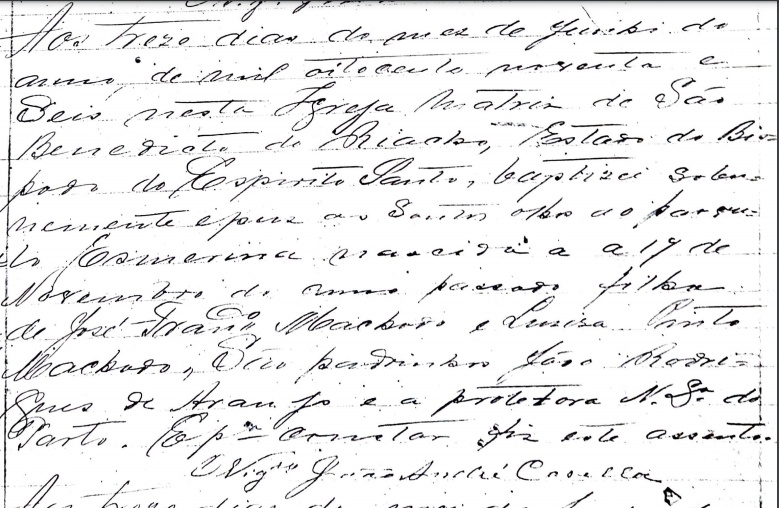 Aos treze dias do mez de Junho do
anno, de mil oitocento noventa e
Seis nesta Igreja Matriz de São
Benedicto do Riacho, Estado do Bis-
pado do Espirito Santo, baptizei solem-
nemente e puz os Santos olhos ao parvu-
lo Esmerina nascida a a 17 de
Novembro do anno passado filha
de José Franco Machado e Luiza Pinto
Machado, São padrinhos João Rodri-
gues de Araujo e a protetora N. Sra do
Parto. E pa constar fiz este assento.
O Vigro João André Casella
Aos treze dias do mez de